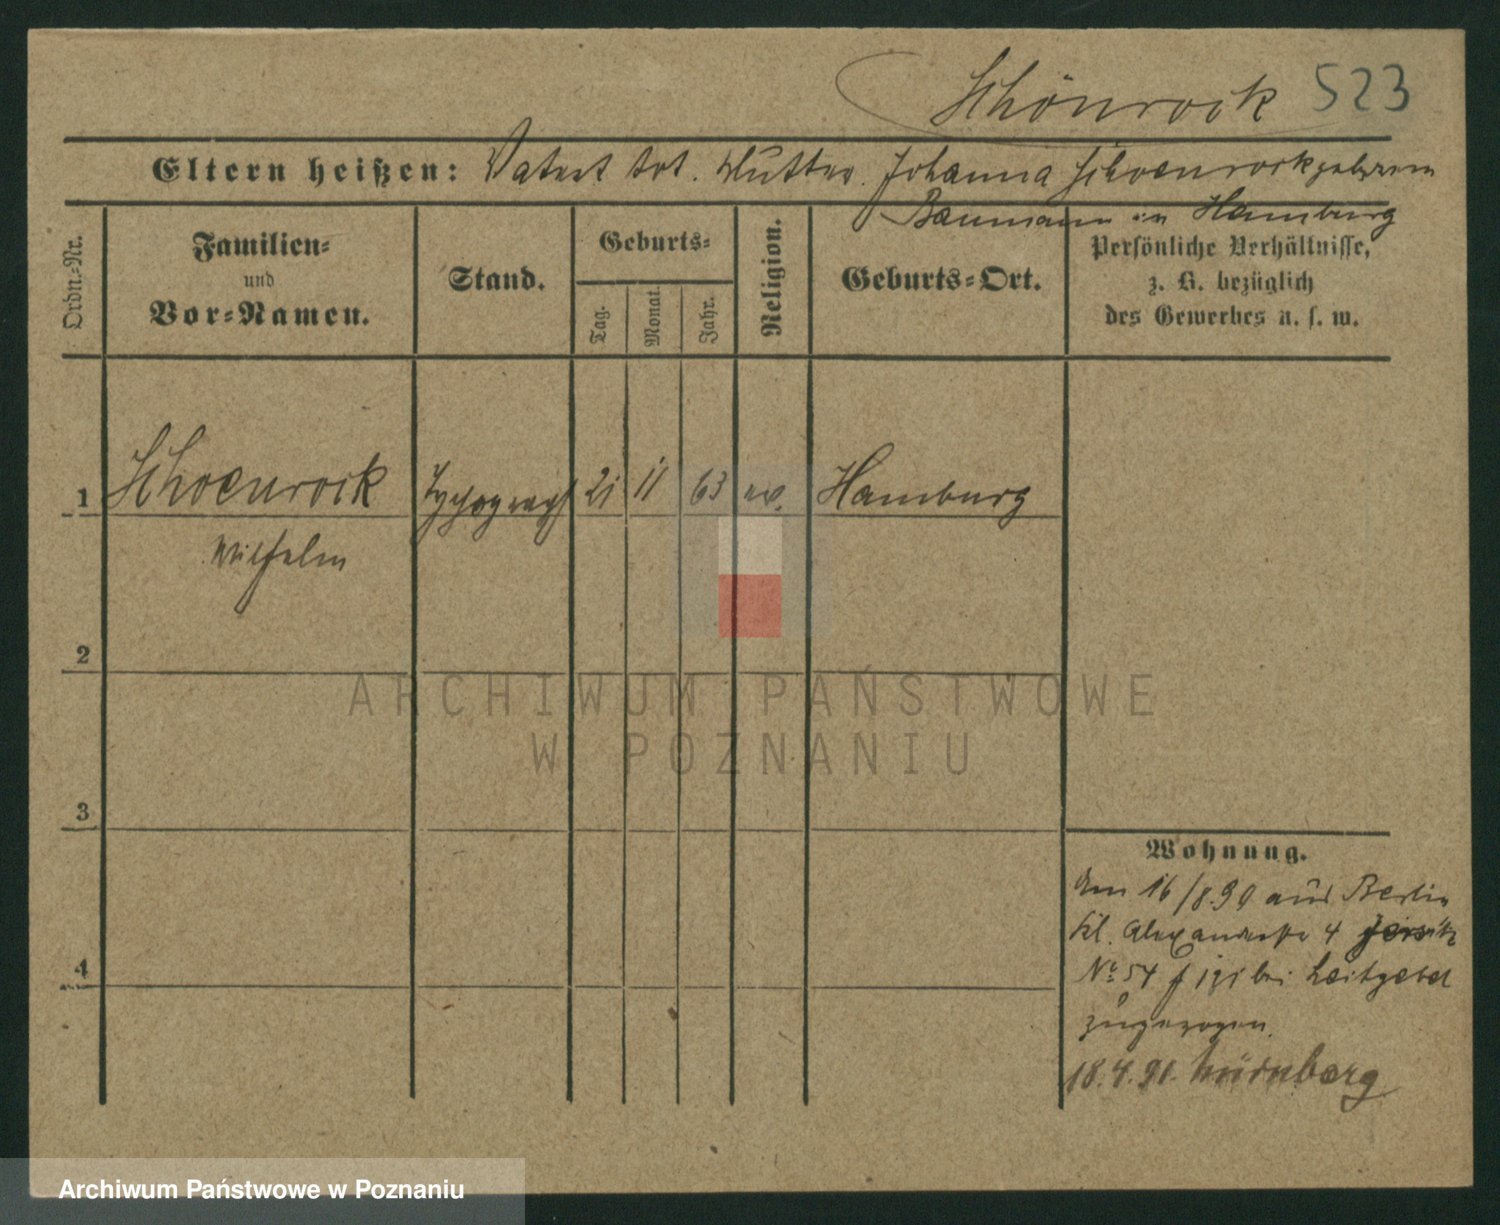 Schönrock 523
Eltern heißen: Vater tot. Mutter. Johanna Schoenrock geborene
Baumann in Hamburg
Ordn.-Nr.
Familien-
und
Vor-Namen.
Stand.
Geburts-
Tag.
Monat.
Jahr.
Religion.
Geburts-Ort.
Persönliche Verhältnisse,
z. B. bezüglich
des Gewerbes u. s. w.
1 Schoenrock Typograph 21 11 63 ev. Hamburg
Wilhelm
2
3
4
Wohnung.
Am 16/8.90 aus Berlin
kl. Alexanderstr 4 Jersitz
No 54 bei Leitgeber
zugezogen.
18.4.91. Nürnberg
ARCHIWUM PAŃSTWOWE
W POZNANIU
Archiwum Państwowe w Poznaniu